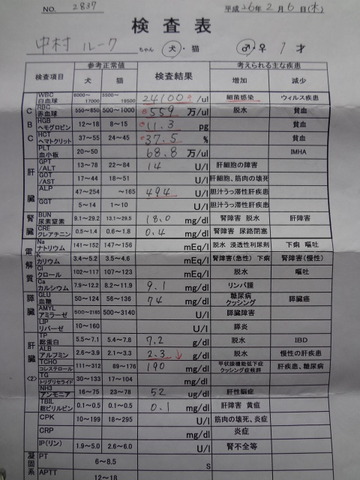 NO. 2837
平成26年2月6日(木)
検査表
中村 ルーク ちゃん 犬・猫 ♂・♀ 1才
参考正常値 検査結果 考えられる主な疾患
検査項目 犬 猫 増加 減少
WBC 白血球 6000～17000 5500～19500 24100 /ul 細菌感染 ウィルス疾患
RBC 赤血球 550～850 500～1000 559 万/ul 脱水 貧血
HGB ヘモグロビン 12～18 8～15 11.3 pg 貧血
HCT ヘマトクリット 37～55 24～45 37.5 % 脱水 貧血
PLT 血小板 20～50 68.8 万/ul IMHA
肝臓
GPT /ALT 13～78 22～84 14 U/l 肝細胞の障害
GOT /AST 17～44 18～51 U/l 肝細胞、筋肉の壊死
ALP 47～254 ～165 494 U/l 胆汁うっ滞性肝疾患
GGT 5～14 1～10 U/l 胆汁うっ滞性肝疾患
腎臓
BUN 尿素窒素 9.1～29.2 13.1～29.5 18.0 mg/dl 腎障害 脱水 肝障害
CRE クレアチニン 0.4～1.4 0.9～2.1 0.4 mg/dl 腎障害 尿路閉塞
電解質
Na ナトリウム 141～152 147～156 mEq/l 脱水 浸透性利尿剤 下痢 嘔吐
K カリウム 3.4～5.2 3.5～4.6 mEq/l 腎障害(急性) 下痢 腎障害(慢性)
Cl クロール 102～117 107～123 mEq/l 脱水 嘔吐
Ca カルシウム 7.9～12.2 8.8～11.9 9.1 mg/dl リンパ腫
膵臓
GLU 血糖 50～124 56～138 74 mg/dl 糖尿病 クッシング 膵臓癌
AMYL アミラーゼ U/l 膵障害 腎障害
LIP リパーゼ 10～160 U/l 膵炎
肝臓(2)
TP 総蛋白 5.5～7.1 5.4～7.8 7.2 g/dl 脱水 IBD
ALB アルブミン 2.8～3.9 2.3～3.5 2.3↓ g/dl 脱水 慢性の肝疾患
TCHO コレステロール 111～312 89～176 190 mg/dl 肝疾患、糖尿病
TG トリグリセライド 30～133 17～104 mg/dl
NH3 アンモニア 16～75 23～78 52 ug/dl 肝性脳症
TBIL 総ビリルビン 0.1～0.5 0.1～0.5 0.1 mg/dl 肝障害 黄疸
CPK U/l 筋肉の壊死、炎症
CRP mg/dl 炎症
IP(リン) 1.9～5.0 2.6～6.0 U/l 腎不全等
凝固系
PT 6～8.5 S
APTT 12～16